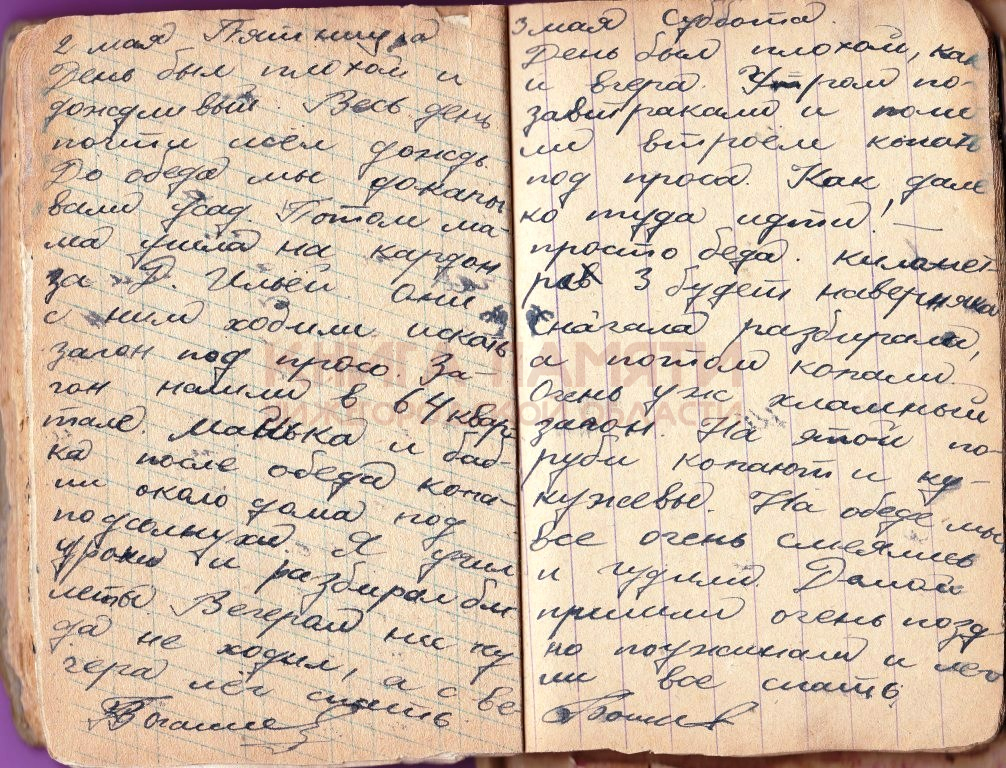 2 мая Пятница
День был плохой и
дождливый. Весь день
почти шёл дождь.
До обеда мы докапы
вали усад. Потом ма-
ма ушла на кардон
за Д. Ильёй. Они
с ним ходили искать
загон под просо. За-
гон нашли в 64 квар
тале. Манька и баб-
ка после обеда копа-
ли около дома под
подсолнухи. Я учил
уроки и разбирал би
леты. Вечером ни ку
да не ходил, а с ве-
чера лёг спать.
3 мая Суббота.
День был плохой, как
и вчера. Утром по-
завтракали и пош
ли втроём копать
под проса. Как дале
ко туда идти! —
просто беда. километ
ров 3 будет наверняка
Сначала разбирали,
а потом копали.
Очень уж хламный
загон. На этой по-
руби копают и ку-
нужевы. На обеде мы
все очень смеялись
и чудили. Домой
пришли очень позд
но поужинали и лег
ли все спать.
КНИГА ПАМЯТИ
НИЖЕГОРОДСКОЙ ОБЛАСТИ